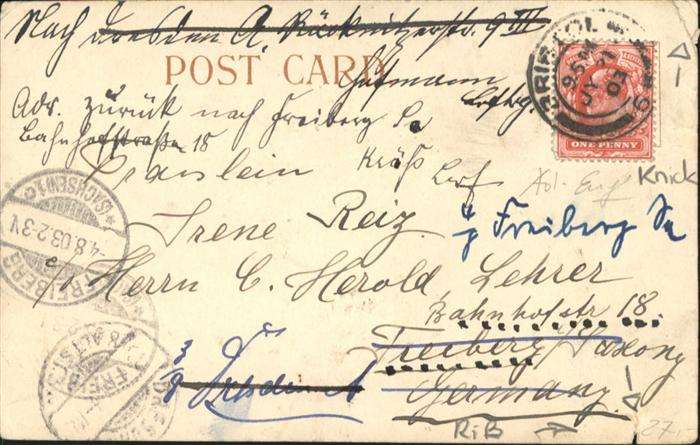 Nach Dresden A. Räcknitzerstr. 9 III
POST CARD
Hofmann
Adr. zurück nach Freiberg Sa
Bahnhofstraße 18
Fräulein
Knick
Irene Reiz
Freiberg Sa
c/o Herrn C. Herold, Lehrer
Bahnhofstr 18.
Freiberg/Saxony
Germany
Dresden
RiB
27.-
BRISTOL
JY 31
03
ONE PENNY
FREIBERG
(SACHSEN)
4.8.03.2-3V
ALTST.